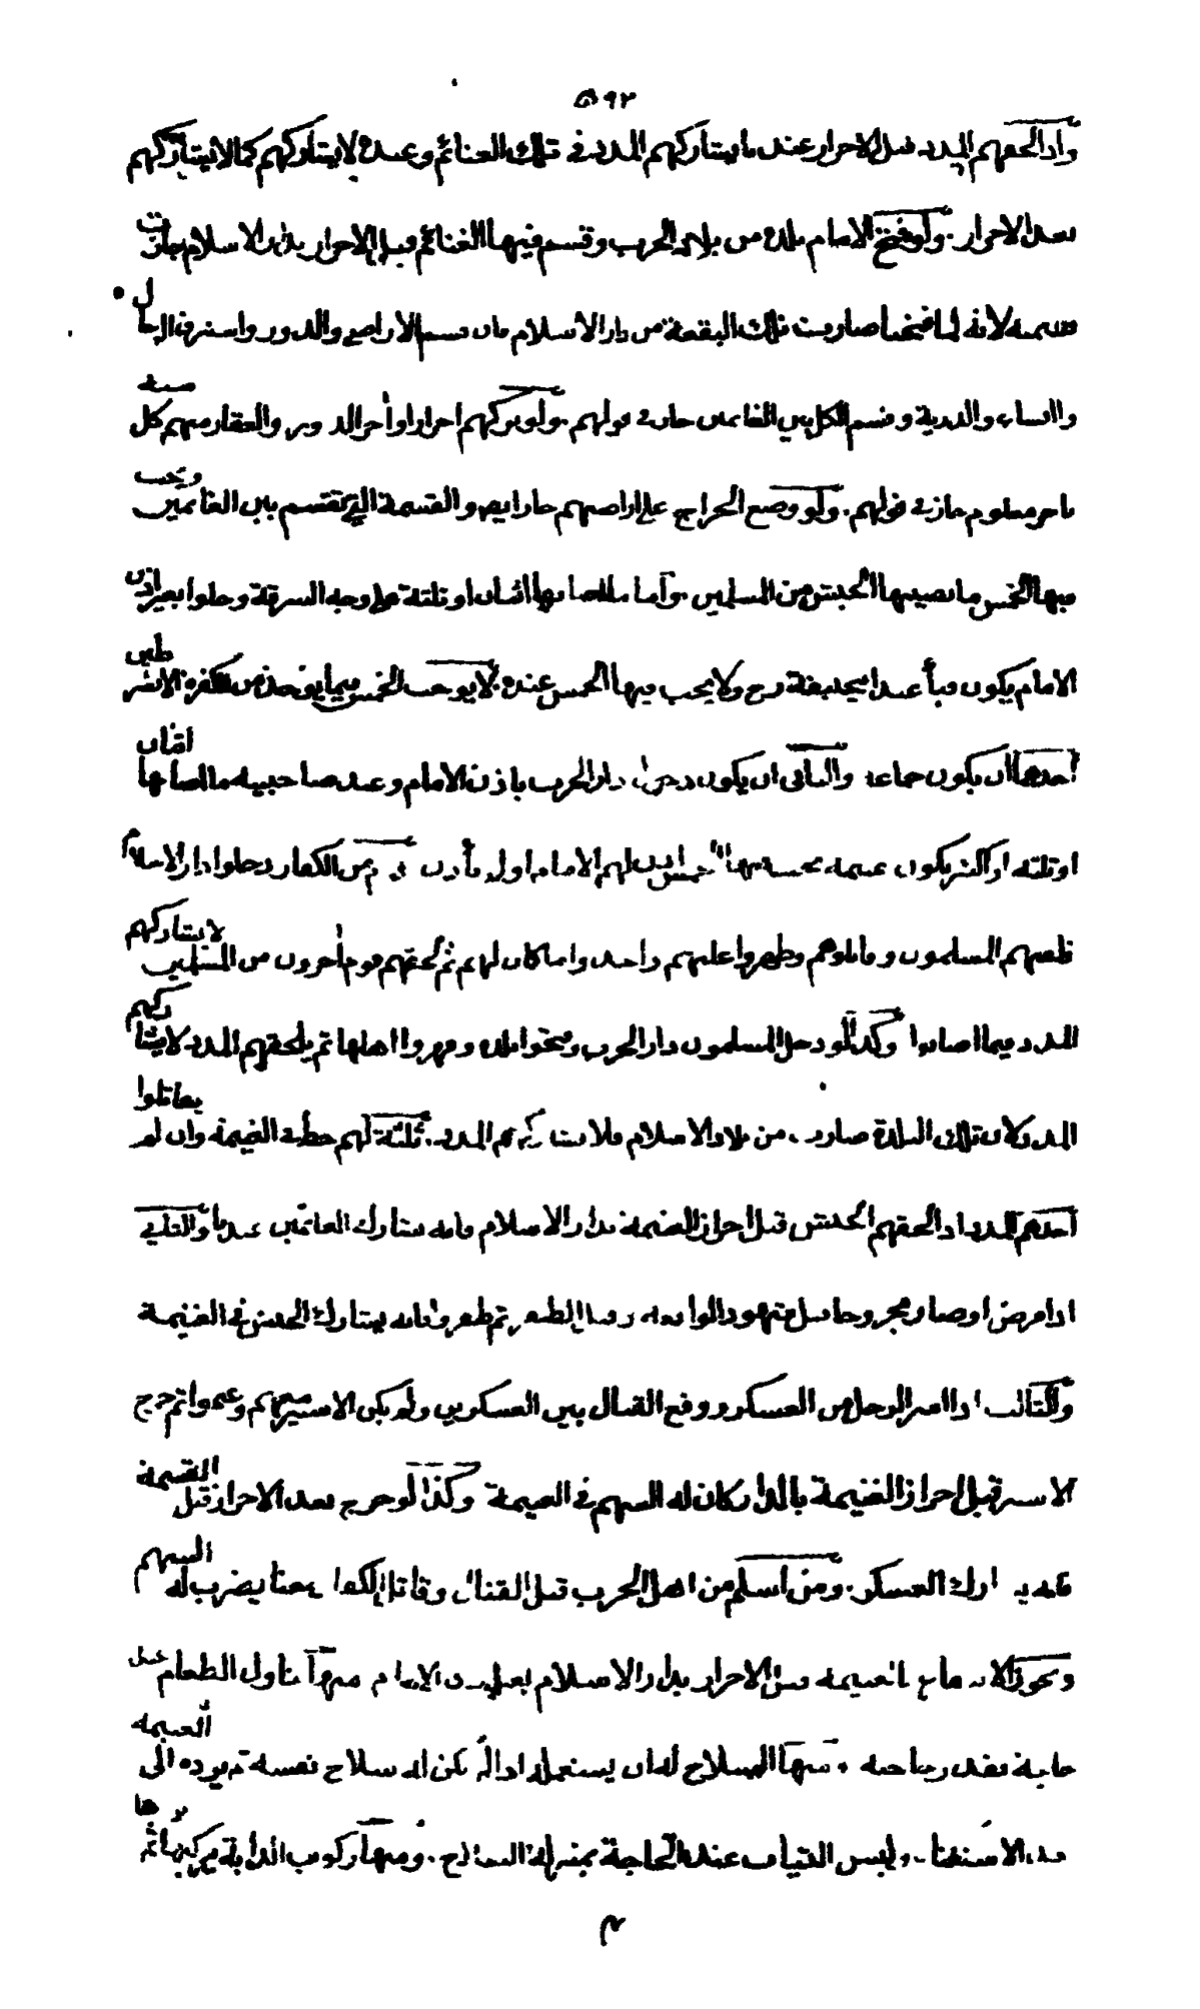 ٥٩٢
واذا لحقهم المدد قبل الاحراز عندنا يشاركهم المدد في تلك الغنائم وعنده لا يشاركهم كما لا يشاركهم
بعد الاحراز . ولو فتح الامام بلدة من بلاد الحرب وقسم فيها الغنائم قبل الاحراز بدار الاسلام جازت
قسمته لانه لما فتحها صارت تلك البقعة من دار الاسلام فان قسم الاراضي والدور واسترق الرجال
والنساء والذرية وقسم الكل بين الغانمين جاز في قولهم . ولو تركهم احرارا والدور والعقار منهم كل سنة
معلوم جاز في قولهم . ولو وضع الخراج على اراضيهم جاز ايضا والقسمة التي تقسم بين الغانمين ويجب
فيها الخمس ما يصيبها الجيش من المسلمين . واما ما اصابها اثنان او ثلثة على وجه السرقة ودخلوا بغير اذن
الامام يكون فيأ عند ابي حنيفة رح ولا يجب فيها الخمس عنده لا يوجب الخمس فيما يؤخذ من الكفرة الا بشرطين
احدهما ان يكون جماعة والثاني ان يكون دخول دار الحرب باذن الامام وعند صاحبيه ما اصابها اثنان
او ثلثة او اكثر يكون غنيمة الامام اولم يأذن قوم من الكفار دخلوا دار الاسلام
فلقيهم المسلمون وقاتلوهم وظهروا عليهم واخذوا ما كان لهم ثم لحقهم قوم اخرون من المسلمين لا يشاركهم
المدد فيما اصابوا وكذا لو دخل المسلمون دار الحرب وفتحوا بلدة وقهروا اهلها ثم يلحقهم المدد لا يشاركهم
المدد لان تلك البلدة صارت من بلاد الاسلام فلا يشاركهم المدد . ثلثة لهم حظ في الغنيمة وان لم يقاتلوا
احدهم المدد اذا لحقهم الجيش قبل احراز الغنيمة بدار الاسلام فانه يشارك الغانمين عندنا والثاني
اذا مرض او صار مجروحا ثم ظهروا فانه يشارك الجيش في الغنيمة
والثالث اذا اسر الرجل من العسكر ووقع القتال بين العسكرين ولم يكن الاسير معهم وغنموا ثم خرج
الاسير قبل احراز الغنيمة بالدار كان له السهم في الغنيمة وكذا لو خرج بعد الاحراز قبل القسمة
فانه يشارك العسكر . ومن اسلم من اهل الحرب قبل القتال وقاتل الكفار معنا يضرب له السهم
ويجوز الانتفاع بالغنيمة قبل الاحراز بدار الاسلام بغير اذن الامام منها تناول الطعام
بقدر حاجته . منها السلاح له ان يستعمله اذا لم يكن له سلاح نفسه ثم يرده الى الغنيمة
بعد الاستغناء . ولبس الثياب عند الحاجة بمنزلة السلاح . ومنها ركوب الدابة يركبها ثم يردها